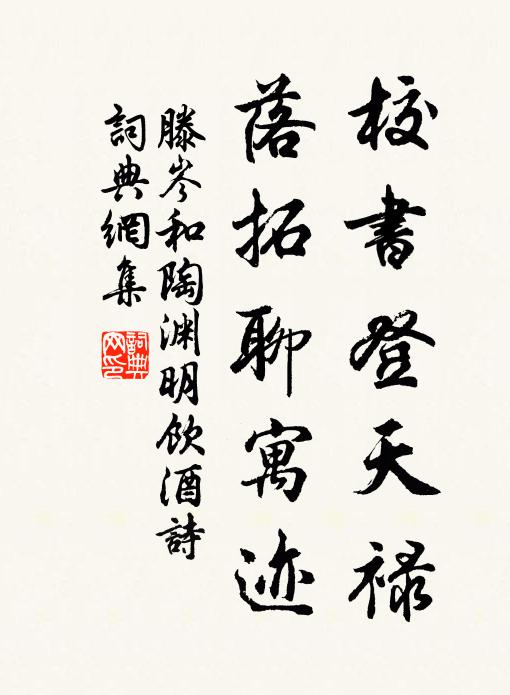 校書登天禄
落拓聊寓迹
滕岑和陶渊明饮酒詩
詞典網集
詞典
网印